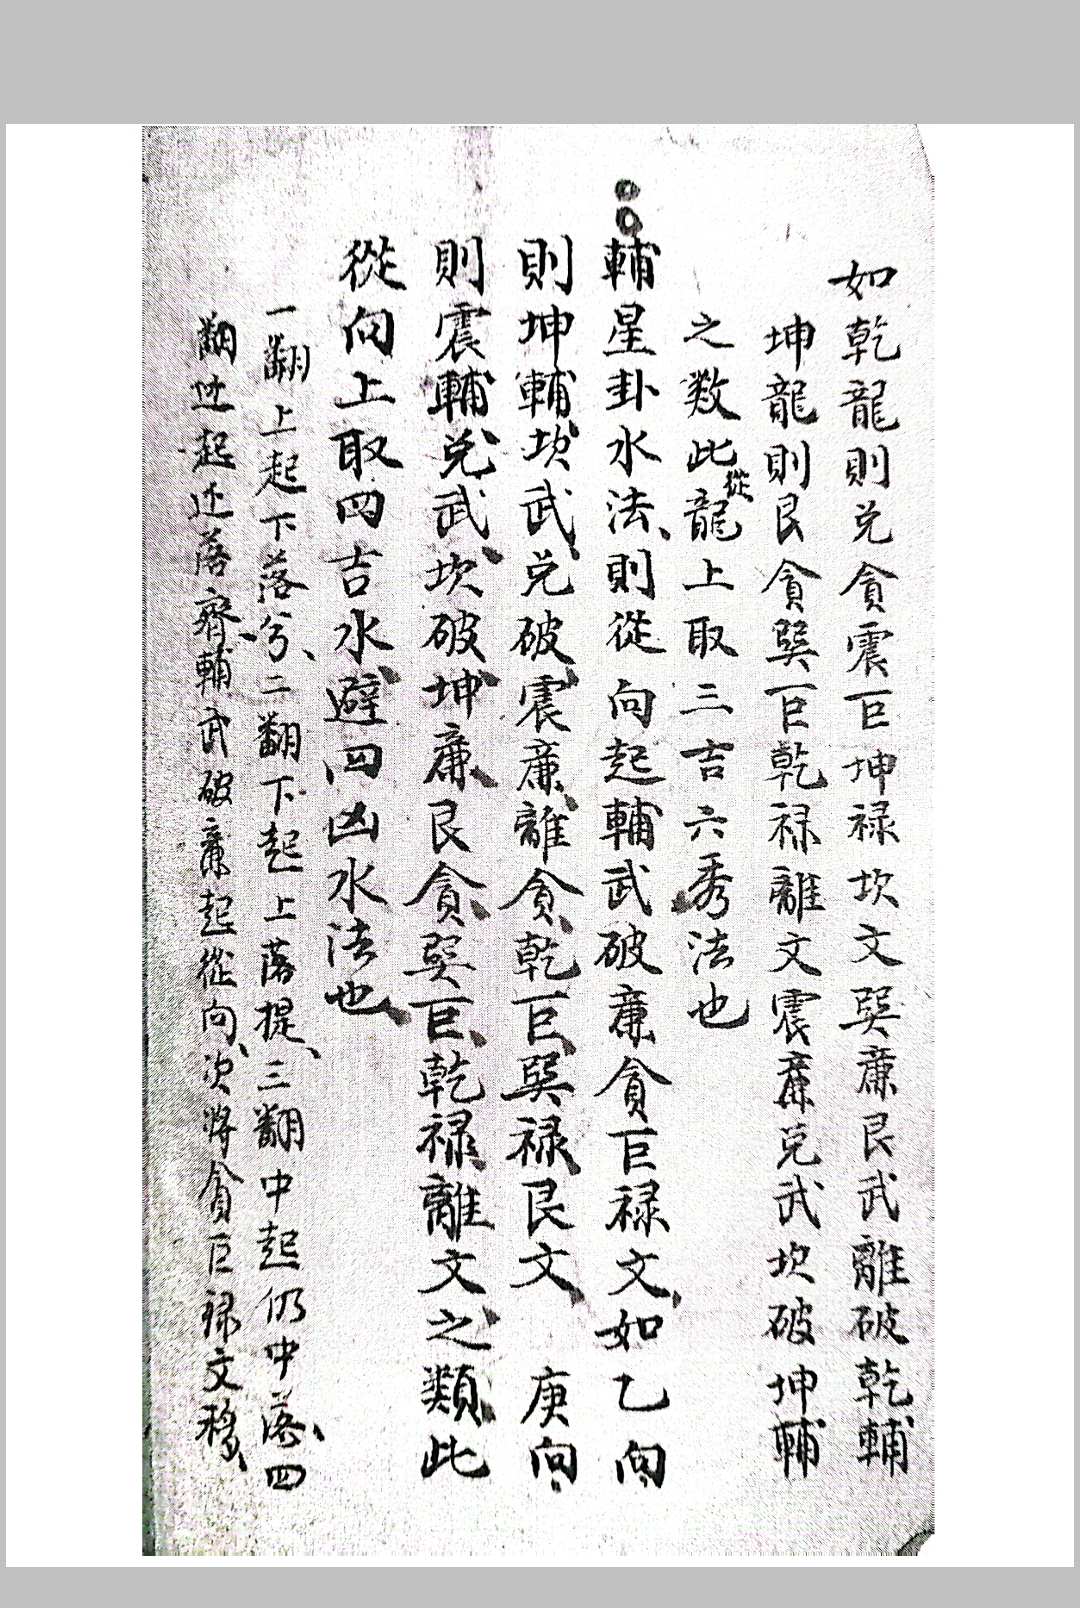 如乾龍則兌貪震巨坤禄坎文巽廉艮武離破乾輔
坤龍則艮貪巽巨乾禄離文震廉兌武坎破坤輔
之数此從龍上取三吉六秀法也
輔星卦水法則從向起輔武破廉貪巨禄文如乙向
則坤輔坎武兌破震廉離貪乾巨巽禄艮文庚向
則震輔兌武坎破坤廉艮貪巽巨乾禄離文之類此
從向上取四吉水避四凶水法也
一翻上起下落兮二翻下起上落提三翻中起仍中落四
翻边起还落齊輔武破廉起從向次將貪巨禄文移